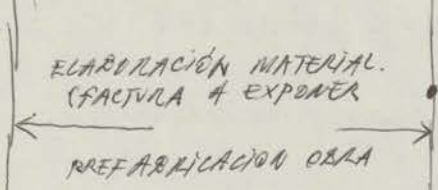 ELABORACIÓN MATERIAL.
(FACTURA A EXPONER
PREFABRICACION OBRA